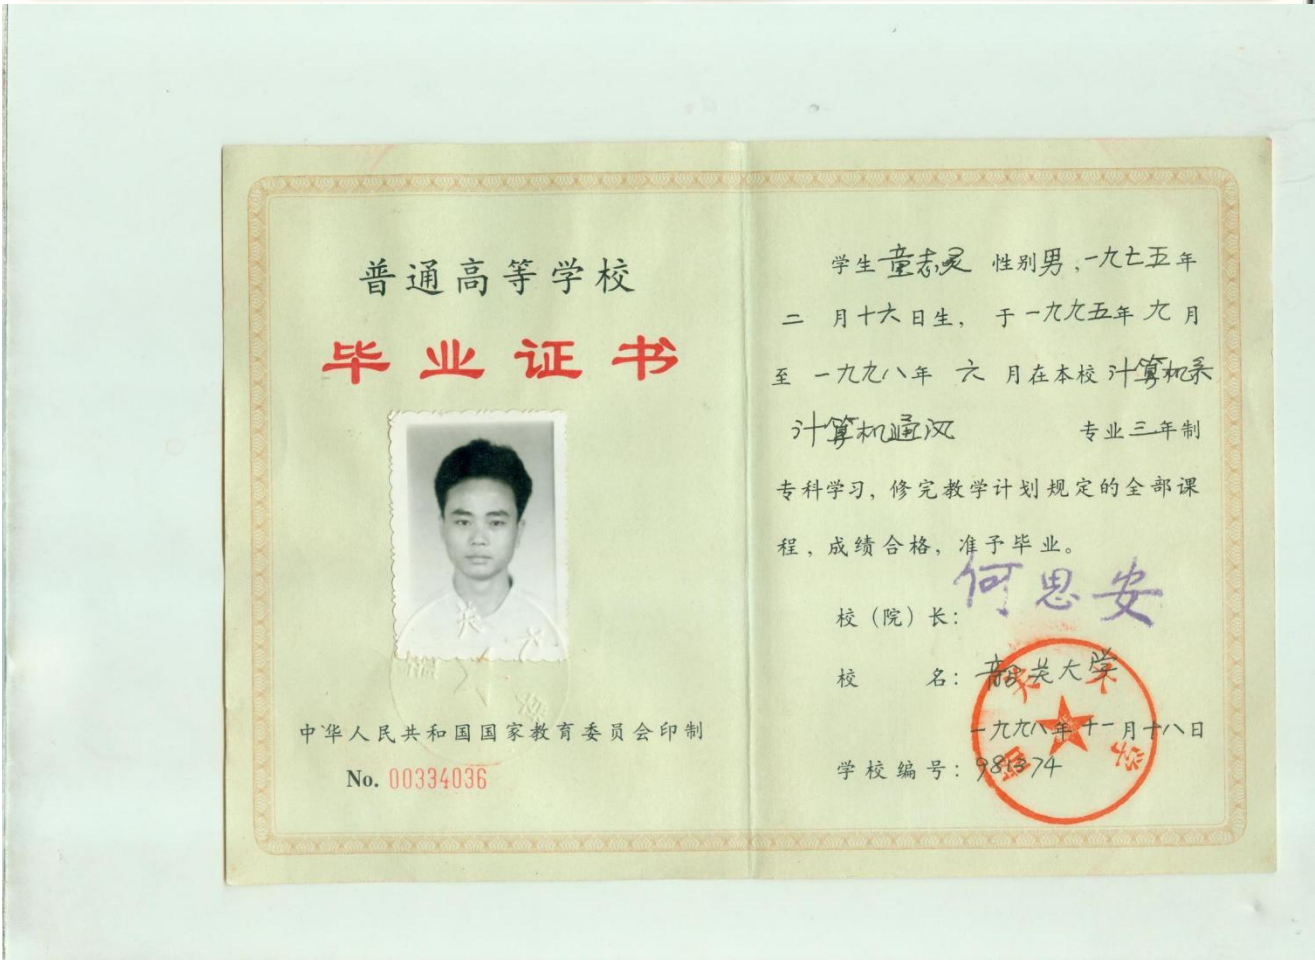 普通高等学校
毕业证书
中华人民共和国国家教育委员会印制
No. 00334036
学生 童志灵 性别 男，一九七五年
二 月十六日生， 于一九九五年 九 月
至 一九九八年 六 月在本校 计算机系
计算机通讯 专业 三 年制
专科学习，修完教学计划规定的全部课
程，成绩合格，准予毕业。
校（院）长： 何思安
校 名： 韶关大学
一九九八年 十一 月十八日
学校编号：